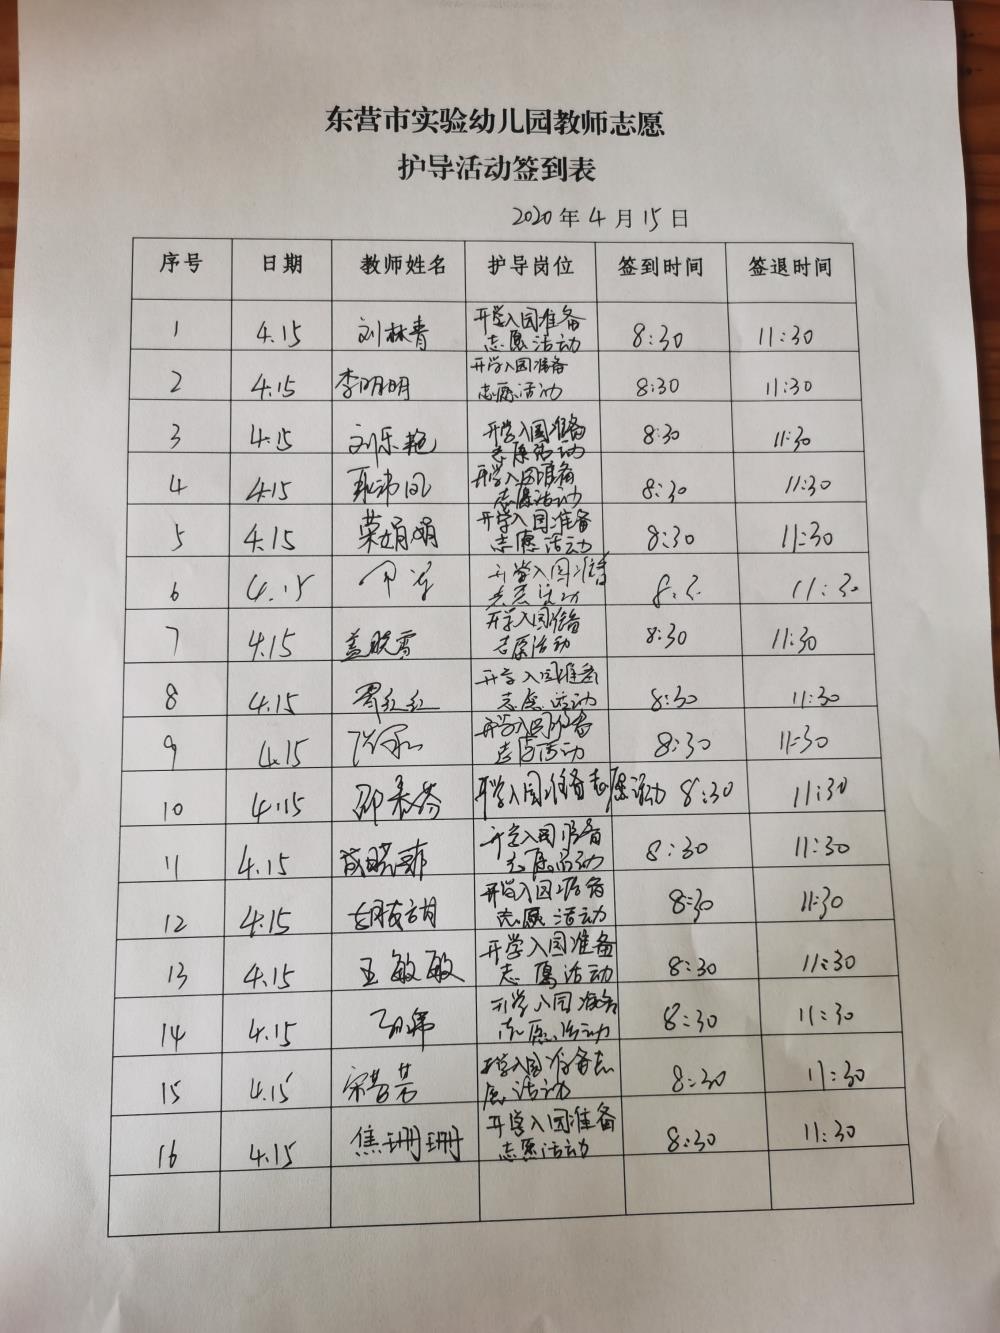 东营市实验幼儿园教师志愿
护导活动签到表
2020年4月15日
序号 日期 教师姓名 护导岗位 签到时间 签退时间
1 4.15 刘林青 开学入园准备志愿活动 8:30 11:30
2 4.15 李明明 开学入园准备志愿活动 8:30 11:30
3 4.15 刘乐艳 开学入园准备志愿活动 8:30 11:30
4 4.15 开学入园准备志愿活动 8:30 11:30
5 4.15 荣娟娟 开学入园准备志愿活动 8:30 11:30
6 4.15 开学入园准备志愿活动 11:30
7 4.15 盖晓雪 开学入园准备志愿活动 8:30 11:30
8 4.15 开学入园准备志愿活动 8:30 11:30
9 4.15 开学入园准备志愿活动 8:30 11:30
10 4.15 开学入园准备志愿活动 8:30 11:30
11 4.15 开学入园准备志愿活动 8:30 11:30
12 4.15 开学入园准备志愿活动 8:30 11:30
13 4.15 王敏敏 开学入园准备志愿活动 8:30 11:30
14 4.15 开学入园准备志愿活动 8:30 11:30
15 4.15 开学入园准备志愿活动 8:30 11:30
16 4.15 焦珊珊 开学入园准备志愿活动 8:30 11:30